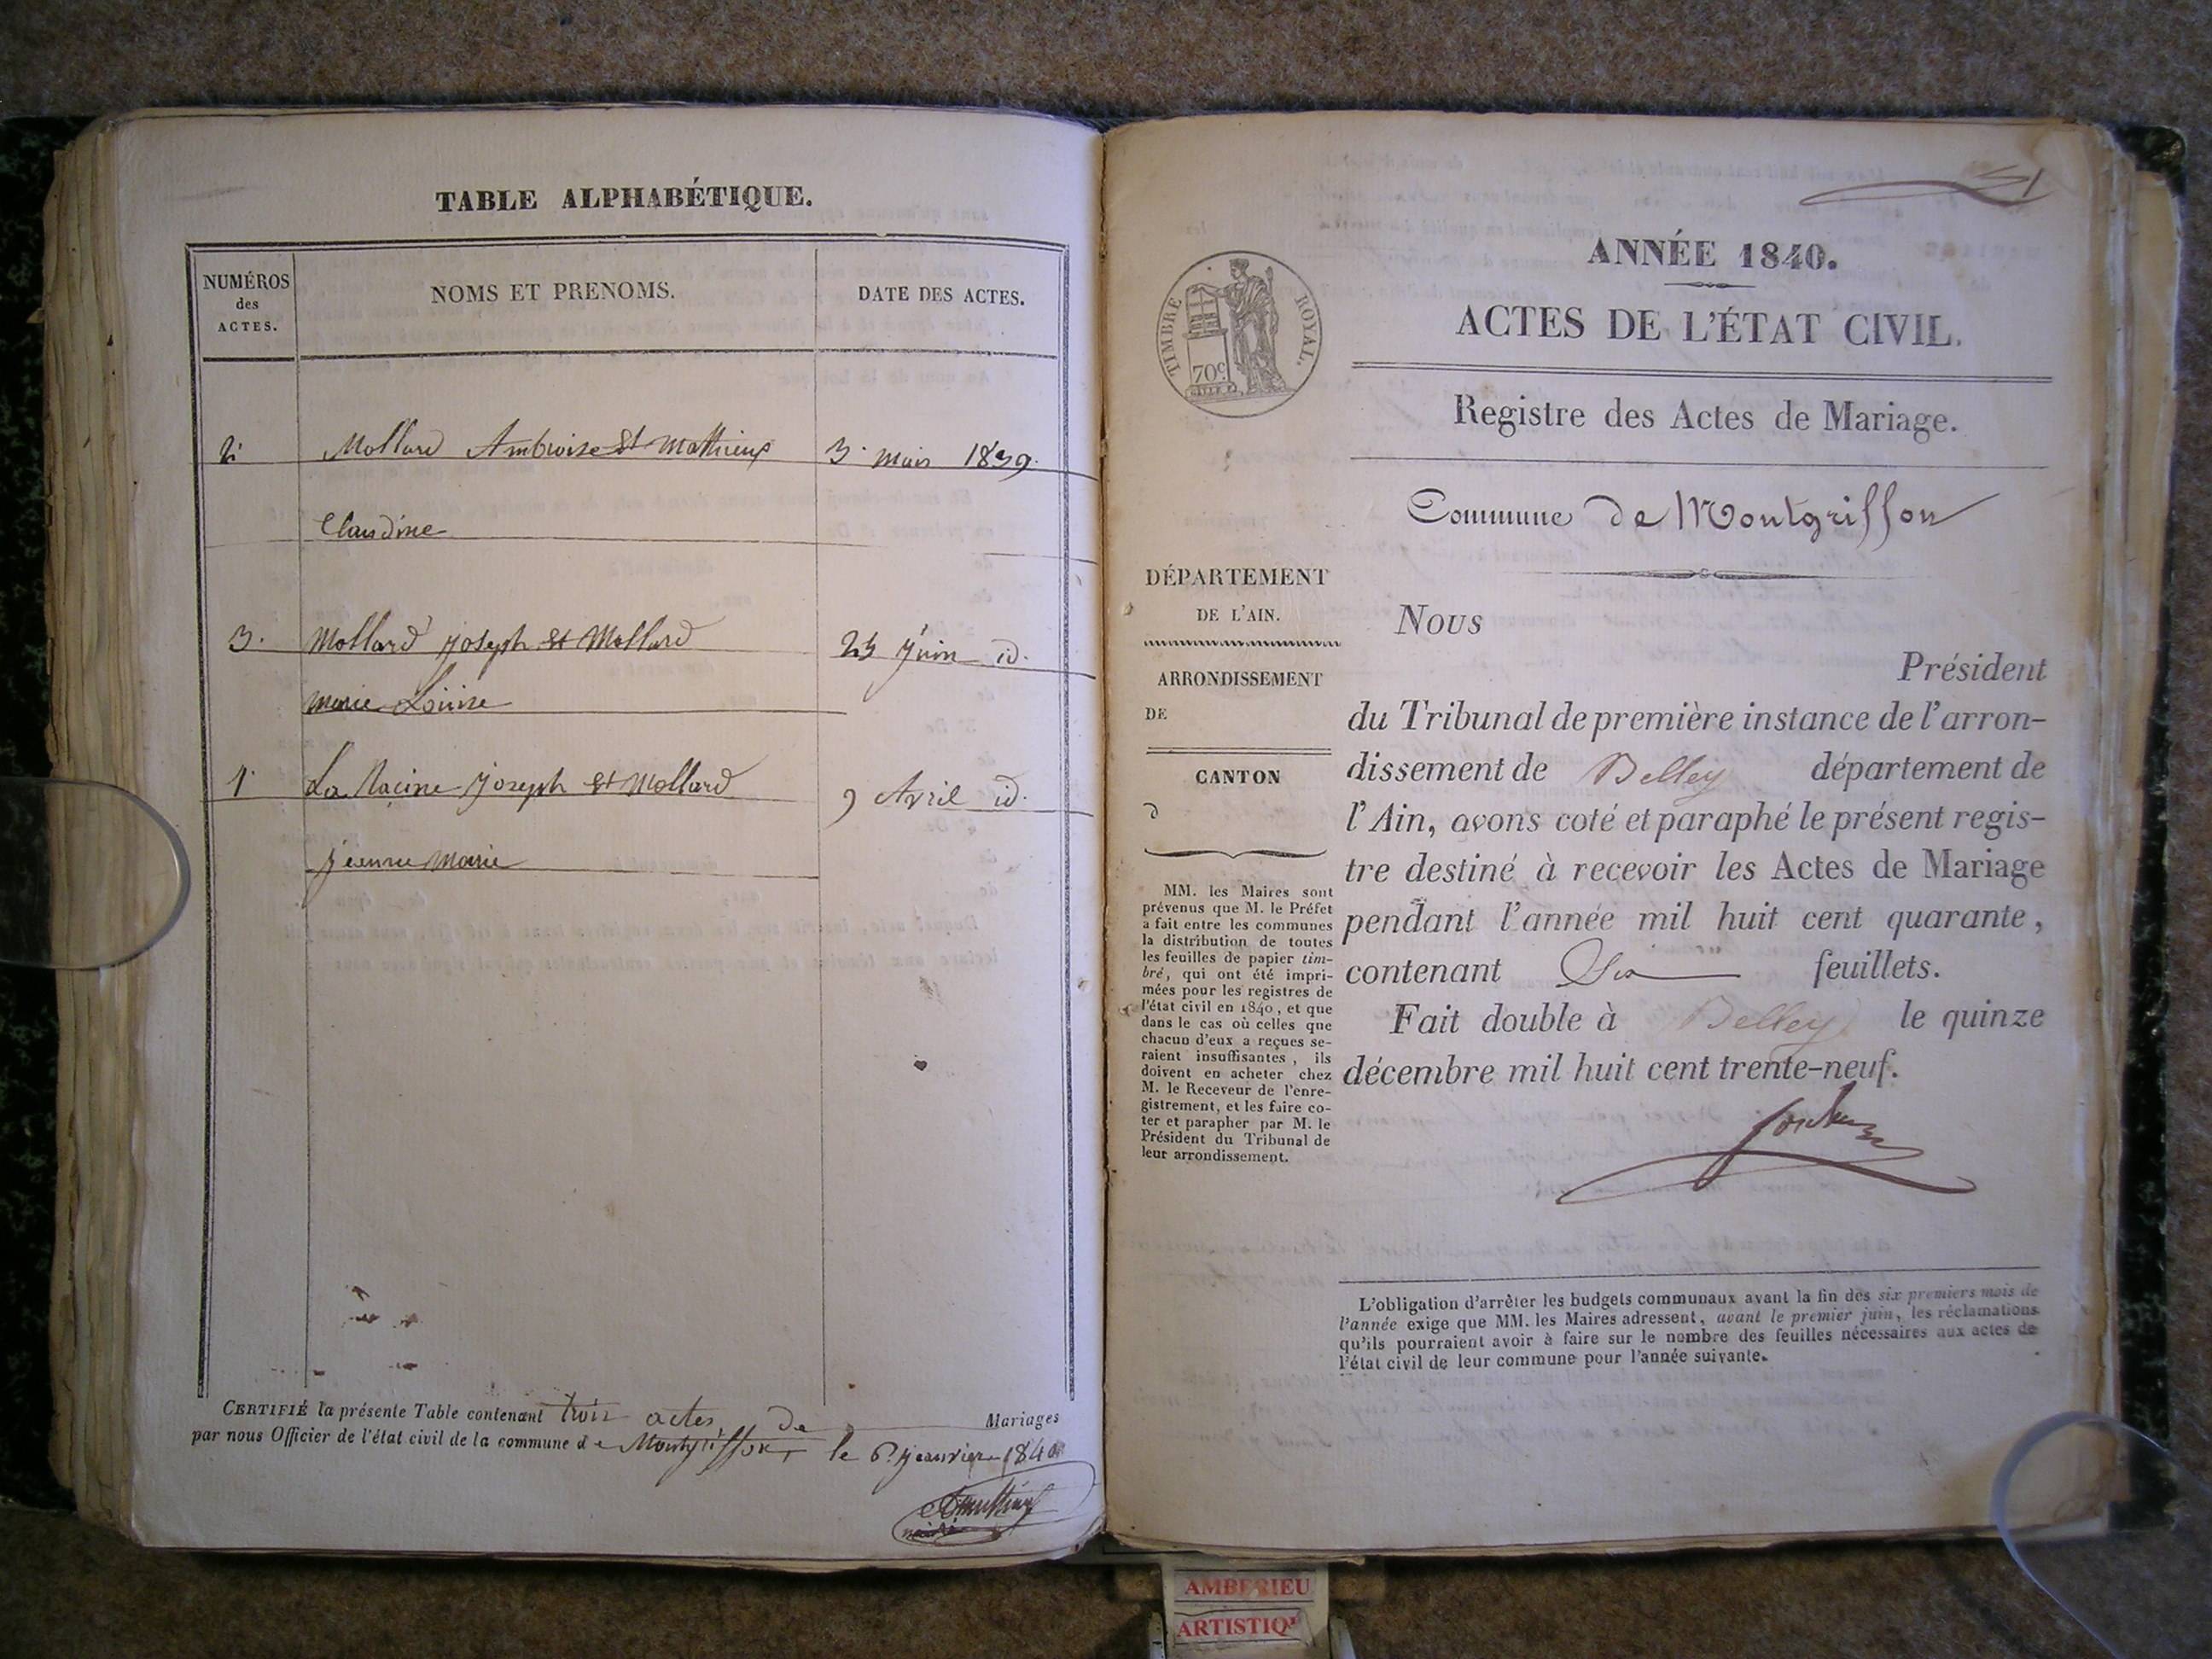 TABLE ALPHABÉTIQUE.
NUMÉROS
des
ACTES.
NOMS ET PRENOMS.
DATE DES ACTES.
2. Mollard Ambroise et Mathieux 3. mai 1839.
Claudine
3. Mollard Joseph et Mollard 23 Juin id.
marie Louise
1. La Racine Joseph et Mollard 9 Avril id.
jeanne Marie
CERTIFIÉ la présente Table contenant trois actes de Mariages
par nous Officier de l'état civil de la commune de Montgriffon, le 6. janvier 1840
51
ANNÉE 1840.
ACTES DE L'ÉTAT CIVIL.
TIMBRE ROYAL.
70c
Registre des Actes de Mariage.
Commune de Montgriffon
DÉPARTEMENT
DE L'AIN.
ARRONDISSEMENT
DE
CANTON
d
MM. les Maires sont
prévenus que M. le Préfet
a fait entre les communes
la distribution de toutes
les feuilles de papier tim-
bré, qui ont été impri-
mées pour les registres de
l'état civil en 1840, et que
dans le cas où celles que
chacun d'eux a reçues se-
raient insuffisantes, ils
doivent en acheter chez
M. le Receveur de l'enre-
gistrement, et les faire co-
ter et parapher par M. le
Président du Tribunal de
leur arrondissement.
Nous
Président
du Tribunal de première instance de l'arron-
dissement de Belley département de
l'Ain, avons coté et paraphé le présent regis-
tre destiné à recevoir les Actes de Mariage
pendant l'année mil huit cent quarante,
contenant Six feuillets.
Fait double à Belley le quinze
décembre mil huit cent trente-neuf.
L'obligation d'arrêter les budgets communaux avant la fin des six premiers mois de
l'année exige que MM. les Maires adressent, avant le premier juin, les réclamations
qu'ils pourraient avoir à faire sur le nombre des feuilles nécessaires aux actes de
l'état civil de leur commune pour l'année suivante.
AMBERIEU
ARTISTIQ